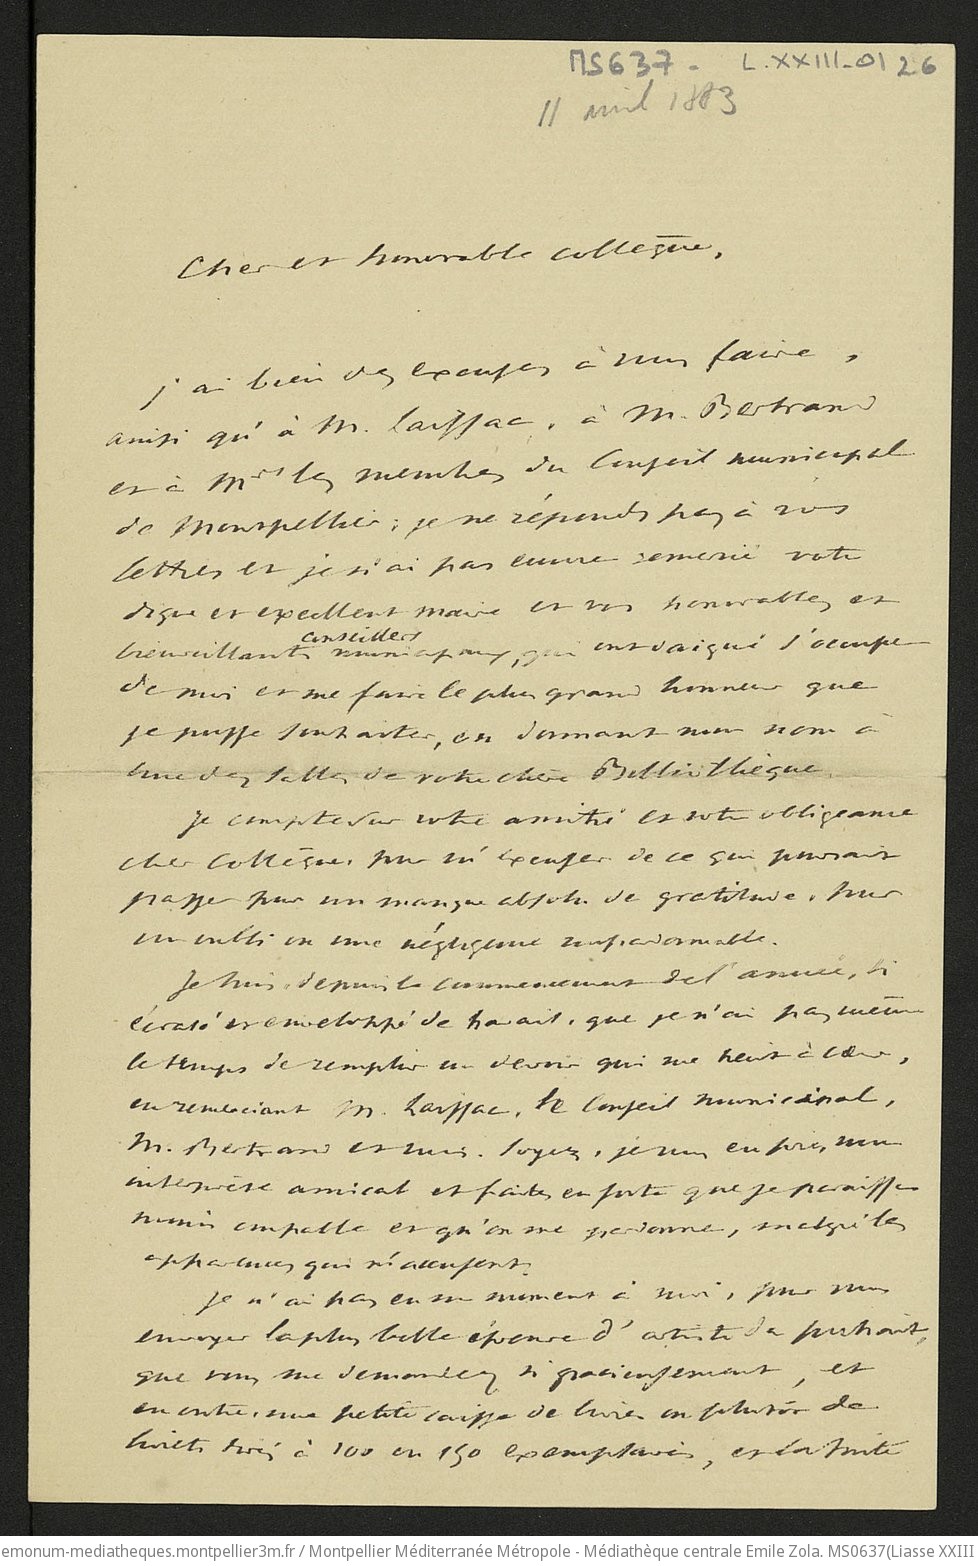 MS637 - L.XXIII-01 26
11 avril 1883
Cher et honorable collègue,
j'ai bien des excuses à vous faire,
ainsi qu'à M. Laissac, à M. Bertrand
et à Mrs les membres du Conseil municipal
de Montpellier; je ne réponds pas à vos
lettres et je n'ai pas encore remercié votre
digne et excellent maire et vos honorables et
conseillers
bienveillants municipaux, qui ont daigné s'occuper
de moi et me faire le plus grand honneur que
je puisse souhaiter, en donnant mon nom à
une des salles de votre chère Bibliothèque.
Je compte sur votre amitié et votre obligeance
cher Collègue, pour m'excuser de ce qui pourrait
passer pour un manque absolu de gratitude, pour
un oubli ou une négligence impardonnable.
Je suis, depuis le commencement de l'année, si
écrasé et enveloppé de travail, que je n'ai pas même
le temps de remplir un devoir qui me tient à cœur,
en remerciant M. Laissac, le Conseil municipal,
M. Bertrand et vous. Soyez, je vous en prie, mon
interprète amical et faites en sorte que je paraisse
moins coupable et qu'on me pardonne, malgré les
apparences qui m'accusent.
Je n'ai pas eu un moment à moi, pour vous
envoyer la plus belle épreuve d'artiste du portrait,
que vous me demandez si gracieusement, et
en outre, une petite caisse de livres ou plutôt de
livrets tirés à 100 ou 150 exemplaires, et la suite
emonum-mediatheques.montpellier3m.fr / Montpellier Méditerranée Métropole - Médiathèque centrale Emile Zola. MS0637(Liasse XXIII